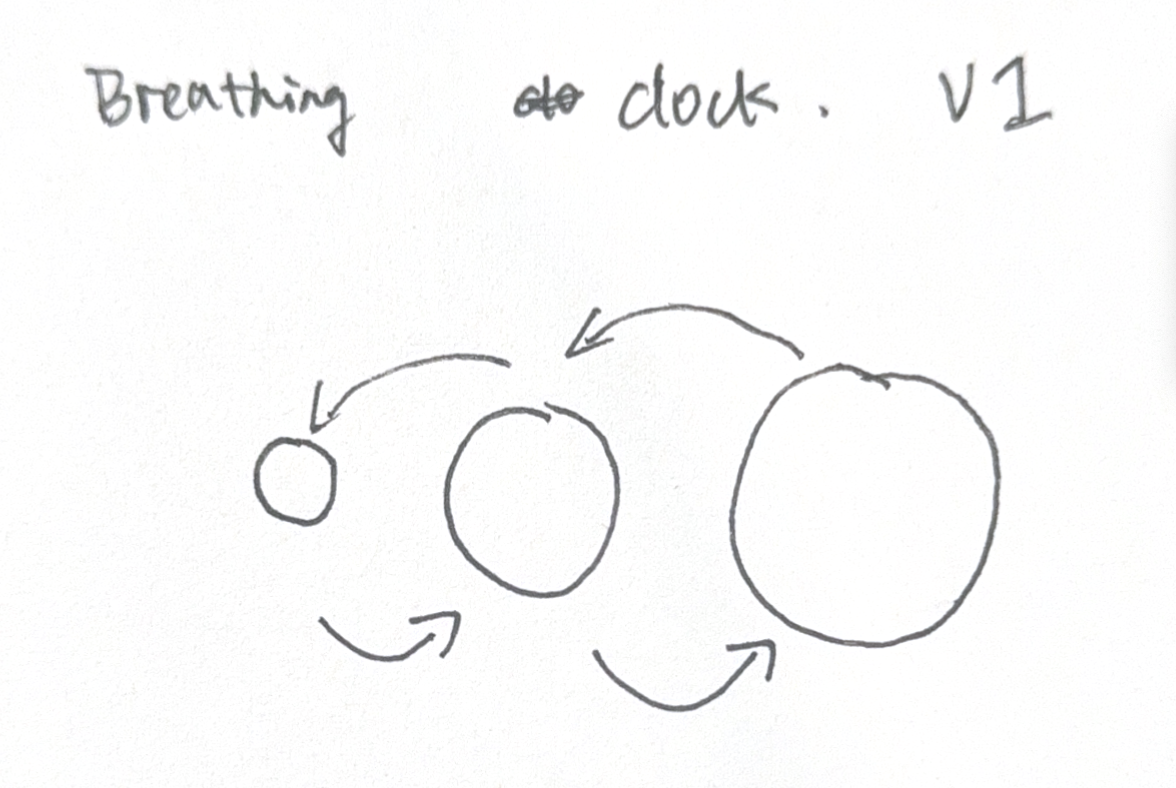 Breathing clock. V1